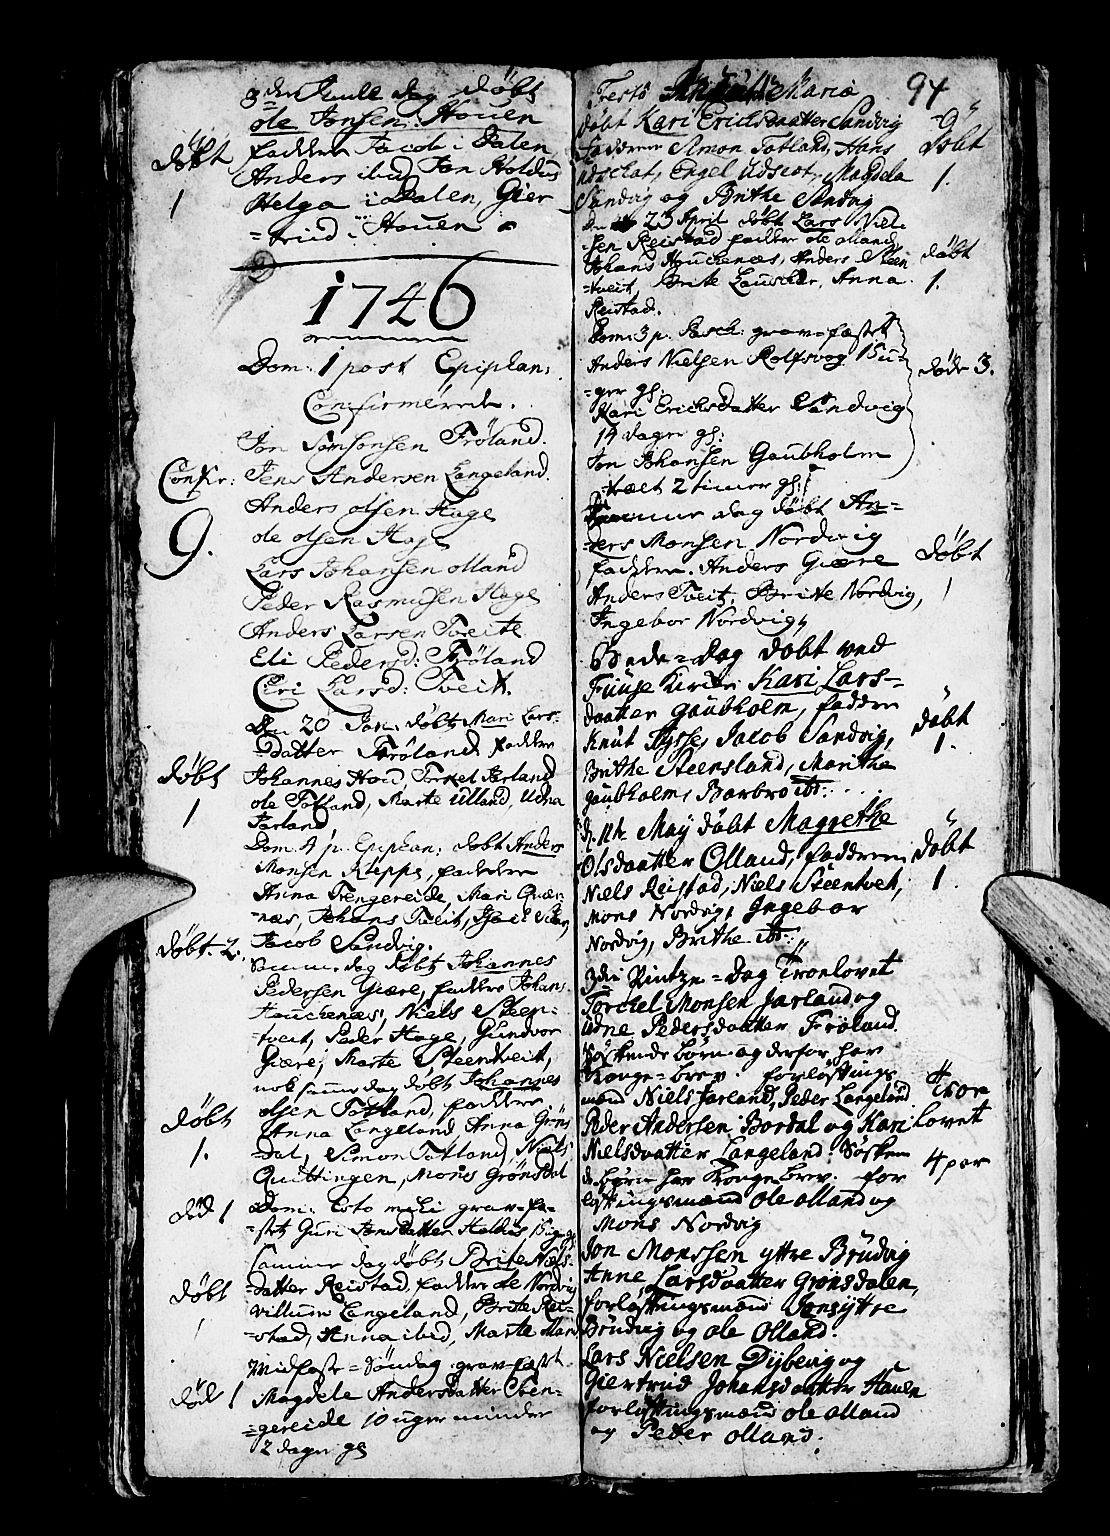 3den Juule dag döbt
ole Jonsen Houen
faddere Jacob i Dalen
Anders ibid Jon Holdus
Helga i Dalen, Gier
=trud i Houen
döbt
1
1746
Dom: 1 post Epiphan:
Confirmerede.
Jon Simonsen Fröland.
Confir: Jens Andersen Langeland.
Anders olsen Hage
9. ole olsen Hage
Lars Johansen olland
Peder Rasmusen Hage
Anders Larsen Tveite
Eli Pedersd: Fröland
Ciri Larsd: Tveit.
Den 20 Jan: döbt Mari Lars=
=datter Fröland fadder
döbt Johannes Hou Torkel Jarland
1 ole Totland, Marte Ulland, Udna
Jarland
Dom: 4 p. Epiphan: döbt Anders
Monsen Kleppe, faddere
Anna Tengereide, Mari Quær=
=næs, Johans Tveit,
döbt. 2. Jacob Sandvig.
Samme dag döbt Johannes
Pedersen Giære, faddere Johans
Hauckenæs, Niels Steen=
=tveit, Peder Hage, Gundvor
Giære, Marte Steentveit,
nok samme dag döbt Johannes
döbt olsen Totland, faddere
1. Anna Langeland Anna Gröns
dal, Simon Totland, Niels
Quittingen, Mons Grönsdal
död 1 Dom: Esto mihi grav=fæ=
=stet Guri Jonsdatter
samme dag döbt Brite Niels=
döbt datter Reistad, fadder ole Nordvig
1 villum Langeland, Brite Rei=
=stad, Anna ibid, Marte olland
Midfaste=Söndag grav=fæst
död 1 Magdele Andersdatter Ten=
=gereide 10 uger minder
2 dager gl
94
Festo Mariæ
döbt Kari Ericksdaatter Sandvig 9
faddere Simon Totland, Hans döbt
Udscot, Engel Udscot, Magdela 1.
Sandvig og Brithe Sandvig
Den 25 April döbt Lars Niel=
=sen Reistad fadder ole olland
Johans Hauckenæs, Anders Steen döbt
=tveit, Brite Anna 1.
Reistad.
Dom: 3 p. Pasch: grav=fæstet
Anders Nielsen Rolfsvog 15 u= döde 3.
=ger gl:
Kari Ericksdatter Sandvig
14 dager gl:
Jon Johansen Gaubholm
2 timer gl:
Samme dag döbt An=
=ders Monsen Nordvig döbt
faddere. Anders Giære 1
Anders Tveit, Brite Nordvig,
Ingebor Nordvig,
Bede=dag döbt ved
Fuuse Kircke Kari Lars=
daatter gaubholm, faddere döbt
Knut Tysse, Jacob Sandvig, 1.
Brithe Steensland, Marithe
gaubholm, Barbro ibd:
d. 11te May döbt Maggrethe
Olsdaatter Olland, faddere döbt
Niels Reistad, Niels Steentvet, 1.
Mons Nordvig, Ingebor
Nordvig, Brithe ibd:
3die Pintze=dag Troelovet
Torckel Monsen Jarland og
Udne Pedersdaatter Fröland.
Söskende börn og derfor har
Konge=brev. forlöftings
mænd Niels Jarland, Peder Langeland Troe
Peder Andersen Bordal og Kari lovet
Nielsdaatter Langeland. Sösken 4 par
de börn har Konge brev. for
löftingsmænd Ole olland og
Mons Nordvig
Jon Monssen yttre Brüdvig
Anne Larsdaatter Grönsdalen,
forlöftingsmænd Jons yttre
Brüdvig og ole Olland.
Lars Nielsen Dybevig og
Giertrud Johansdaatter Hauen
forlöftingsmænd ole olland
og Peder olland.